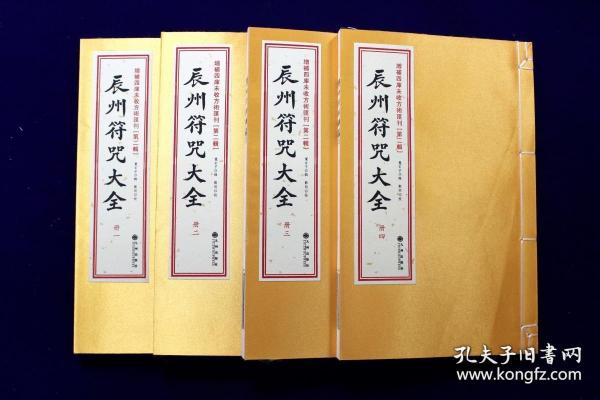 增補四庫未收方術匯刊[第二輯]
辰州符咒大全
册一
增補四庫未收方術匯刊[第二輯]
辰州符咒大全
册二
增補四庫未收方術匯刊[第二輯]
辰州符咒大全
册三
增補四庫未收方術匯刊[第二輯]
辰州符咒大全
册四
孔夫子旧书网
www.kongfz.com